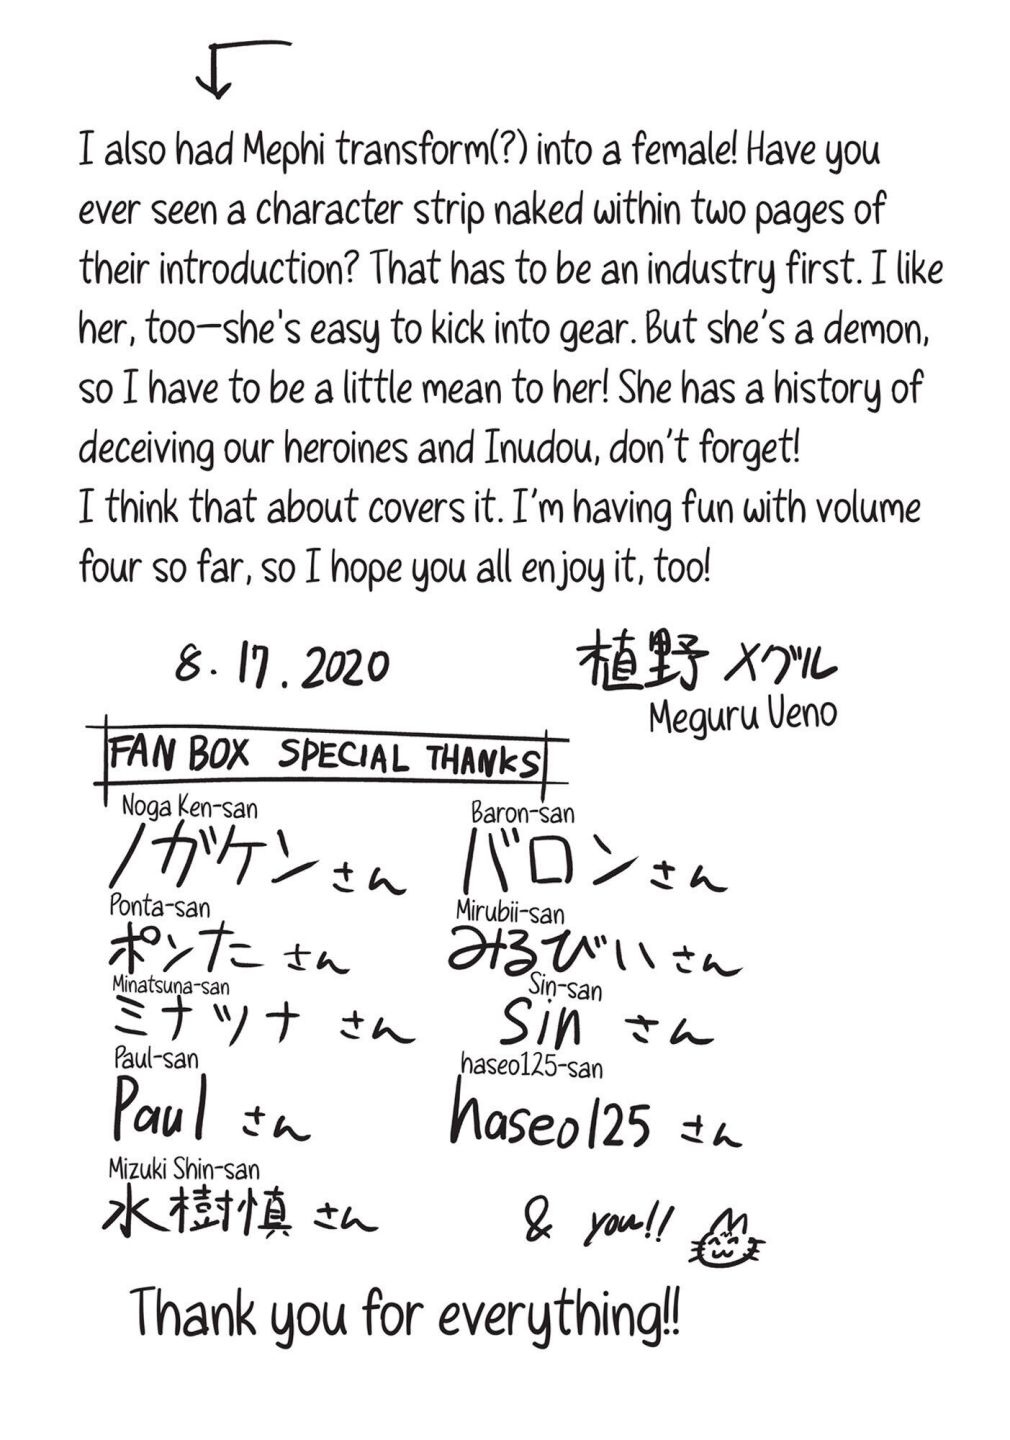 I also had Mephi transform(?) into a female! Have you
ever seen a character strip naked within two pages of
their introduction? That has to be an industry first. I like
her, too—she's easy to kick into gear. But she's a demon,
so I have to be a little mean to her! She has a history of
deceiving our heroines and Inudou, don't forget!
I think that about covers it. I'm having fun with volume
four so far, so I hope you all enjoy it, too!
8.17.2020
植野メグル
Meguru Ueno
FAN BOX SPECIAL THANKS
Noga Ken-san
ノガケン さん
Baron-san
バロン さん
Ponta-san
ポンた さん
Mirubii-san
みるびい さん
Minatsuna-san
ミナツナ さん
Sin-san
Sin さん
Paul-san
Paul さん
haseo125-san
haseo125 さん
Mizuki Shin-san
水樹慎 さん
& you!!
Thank you for everything!!